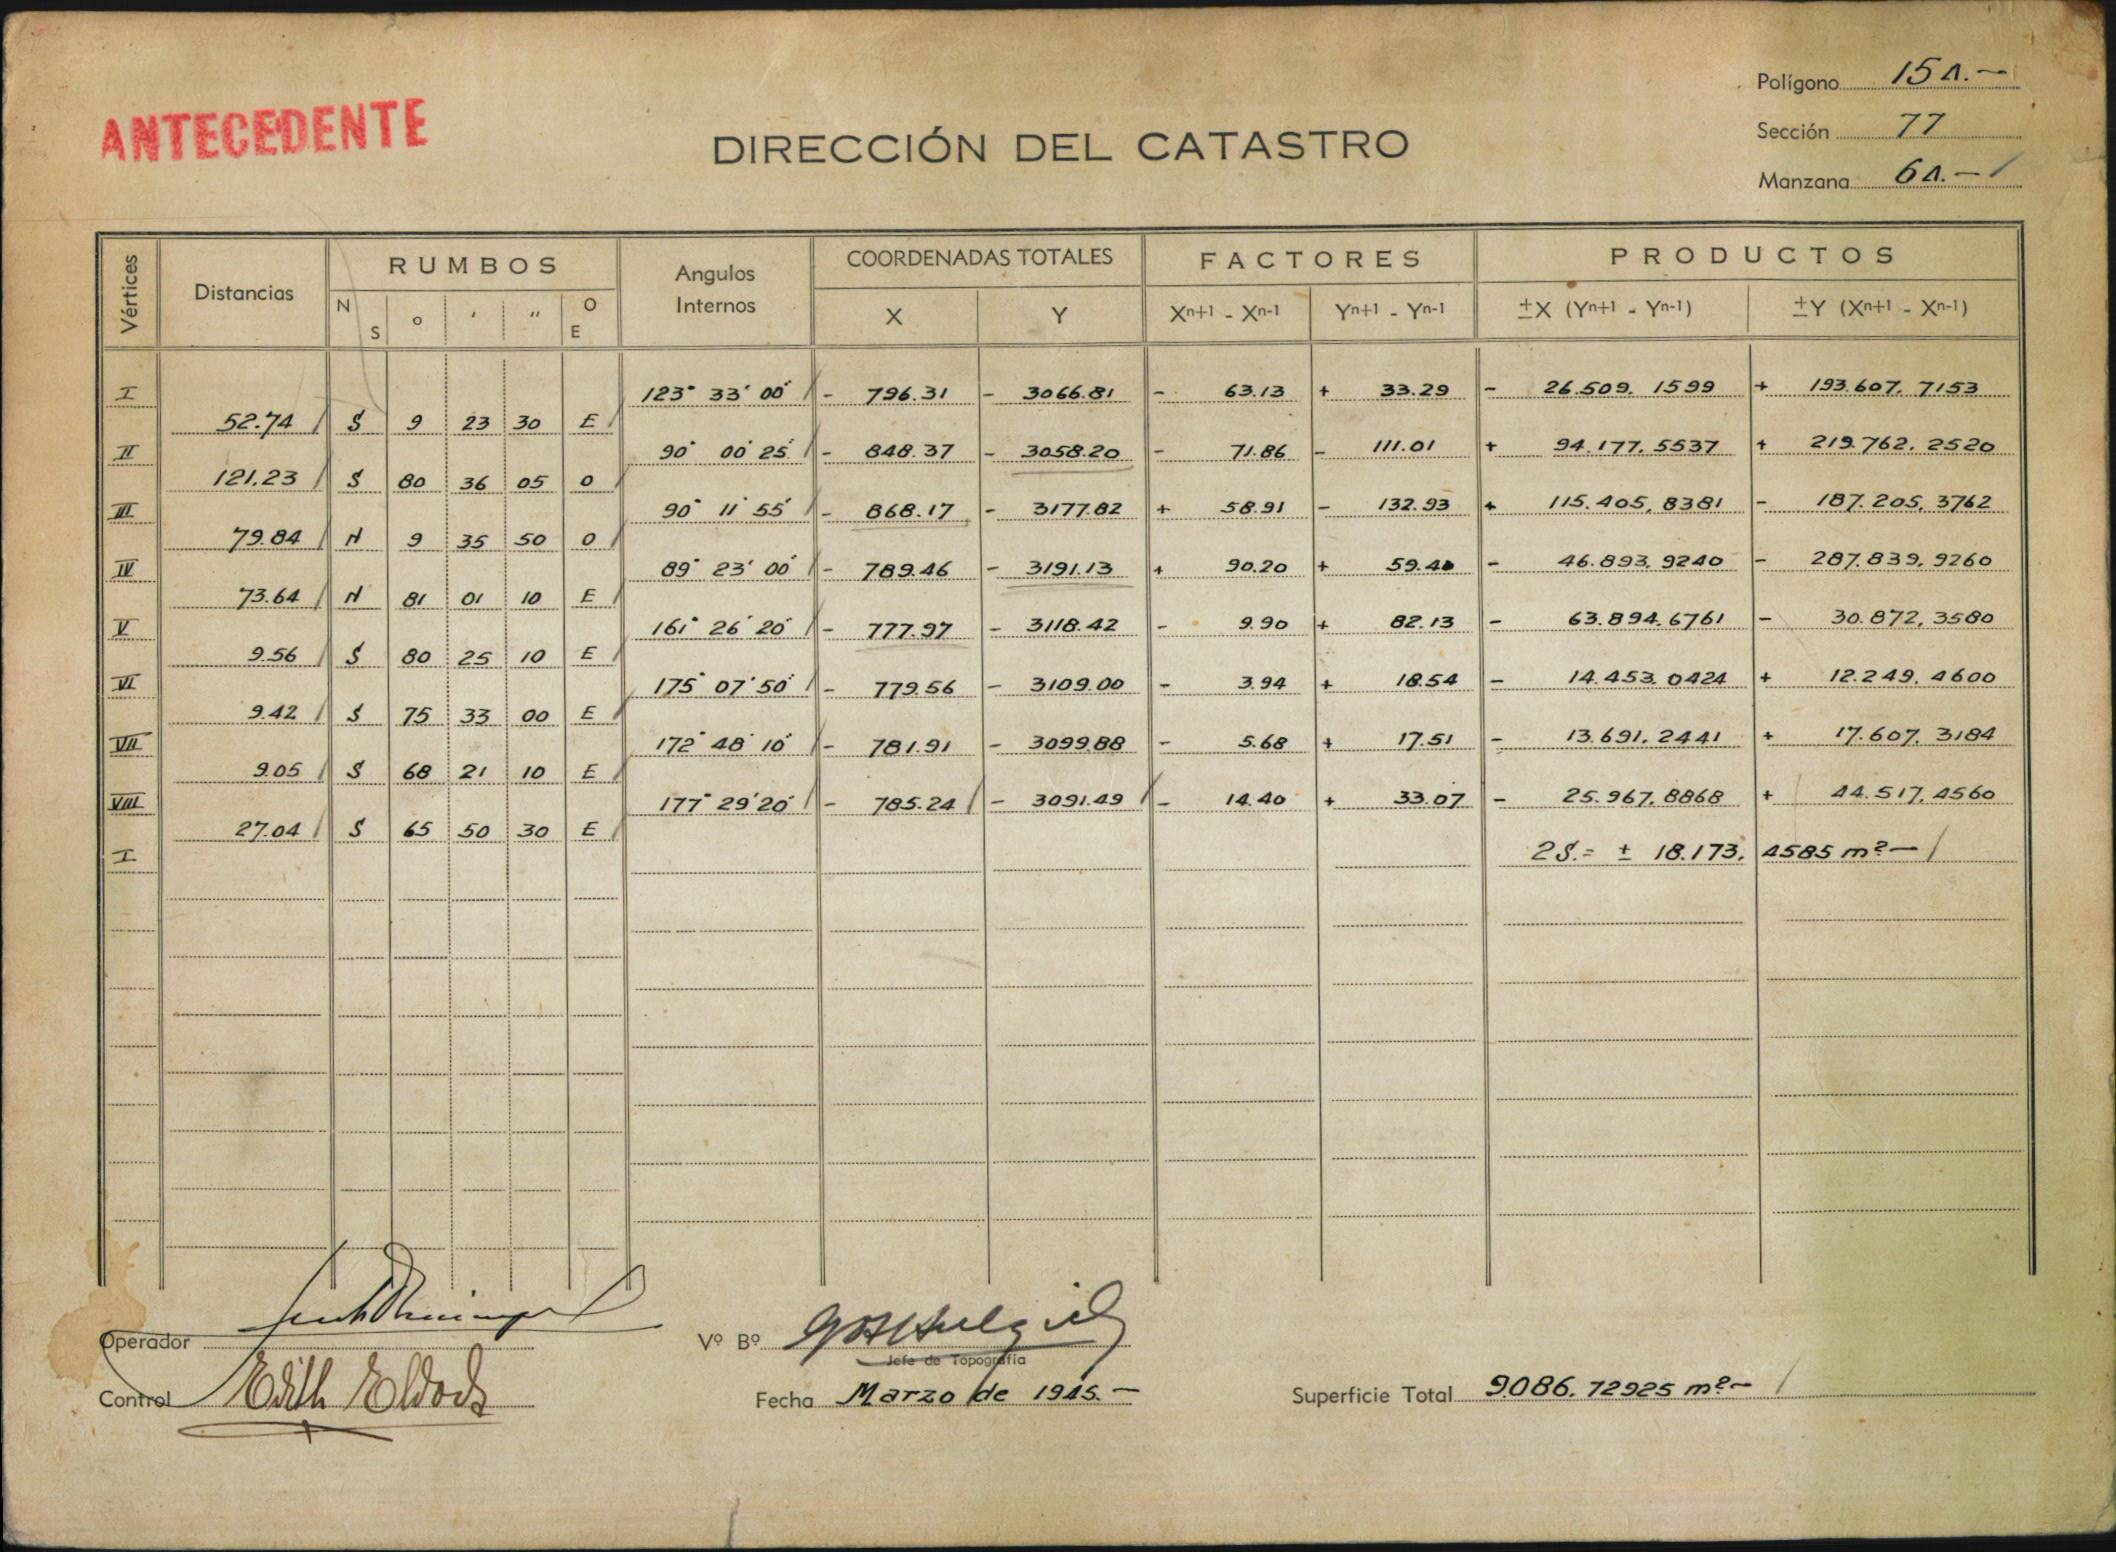 Polígono 15 A.—
ANTECEDENTE
DIRECCIÓN DEL CATASTRO
Sección 77
Manzana 6 A.—
Vértices Distancias RUMBOS Angulos Internos COORDENADAS TOTALES FACTORES PRODUCTOS
N S ° ' " O E X Y Xn+1 - Xn-1 Yn+1 - Yn-1 ±X (Yn+1 - Yn-1) ±Y (Xn+1 - Xn-1)
I 123° 33' 00" - 796.31 - 3066.81 - 63.13 + 33.29 - 26.509,1599 + 193.607,7153
52.74 S 9 23 30 E
II 90° 00' 25" - 848.37 - 3058.20 - 71.86 - 111.01 + 94.177,5537 + 219.762,2520
121.23 S 80 36 05 O
III 90° 11' 55" - 868.17 - 3177.82 + 58.91 - 132.93 + 115.405,8381 - 187.205,3762
79.84 N 9 35 50 O
IV 89° 23' 00" - 789.46 - 3191.13 + 90.20 + 59.40 - 46.893,9240 - 287.839,9260
73.64 N 81 01 10 E
V 161° 26' 20" - 777.97 - 3118.42 - 9.90 + 82.13 - 63.894,6761 - 30.872,3580
9.56 S 80 25 10 E
VI 175° 07' 50" - 779.56 - 3109.00 - 3.94 + 18.54 - 14.453,0424 + 12.249,4600
9.42 S 75 33 00 E
VII 172° 48' 10" - 781.91 - 3099.88 - 5.68 + 17.51 - 13.691,2441 + 17.607,3184
9.05 S 68 21 10 E
VIII 177° 29' 20" - 785.24 - 3091.49 - 14.40 + 33.07 - 25.967,8868 + 44.517,4560
27.04 S 65 50 30 E
I 2S.= ± 18.173,4585 m²—
Operador
Vº Bº
Jefe de Topografía
Control Edith
Fecha Marzo de 1945.—
Superficie Total 9.086.72925 m²—